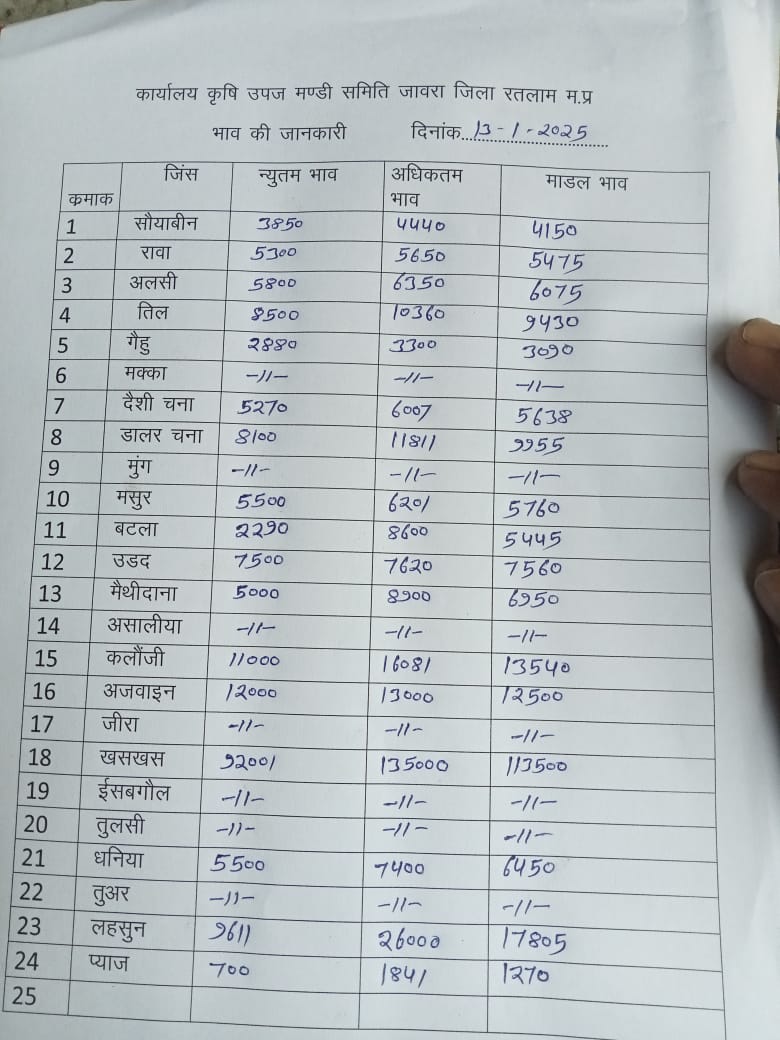 कार्यालय कृषि उपज मण्डी समिति जावरा जिला रतलाम म.प्र
भाव की जानकारी दिनांक...13-1-2025
कमाक जिंस न्युतम भाव अधिकतम भाव माडल भाव
1 सौयाबीन 3850 4440 4150
2 रावा 5300 5650 5475
3 अलसी 5800 6350 6075
4 तिल 8500 10360 9430
5 गैहु 2880 3300 3090
6 मक्का -11- -11- -11-
7 दैशी चना 5270 6007 5638
8 डालर चना 8100 11811 9955
9 मुंग -11- -11- -11-
10 मसुर 5500 6201 5760
11 बटला 2290 8600 5445
12 उडद 7500 7620 7560
13 मैथीदाना 5000 8900 6950
14 असालीया -11- -11- -11-
15 कलौंजी 11000 16081 13540
16 अजवाइन 12000 13000 12500
17 जीरा -11- -11- -11-
18 खसखस 92001 135000 113500
19 ईसबगौल -11- -11- -11-
20 तुलसी -11- -11- -11-
21 धनिया 5500 7400 6450
22 तुअर -11- -11- -11-
23 लहसुन 9611 26000 17805
24 प्याज 700 1841 1270
25